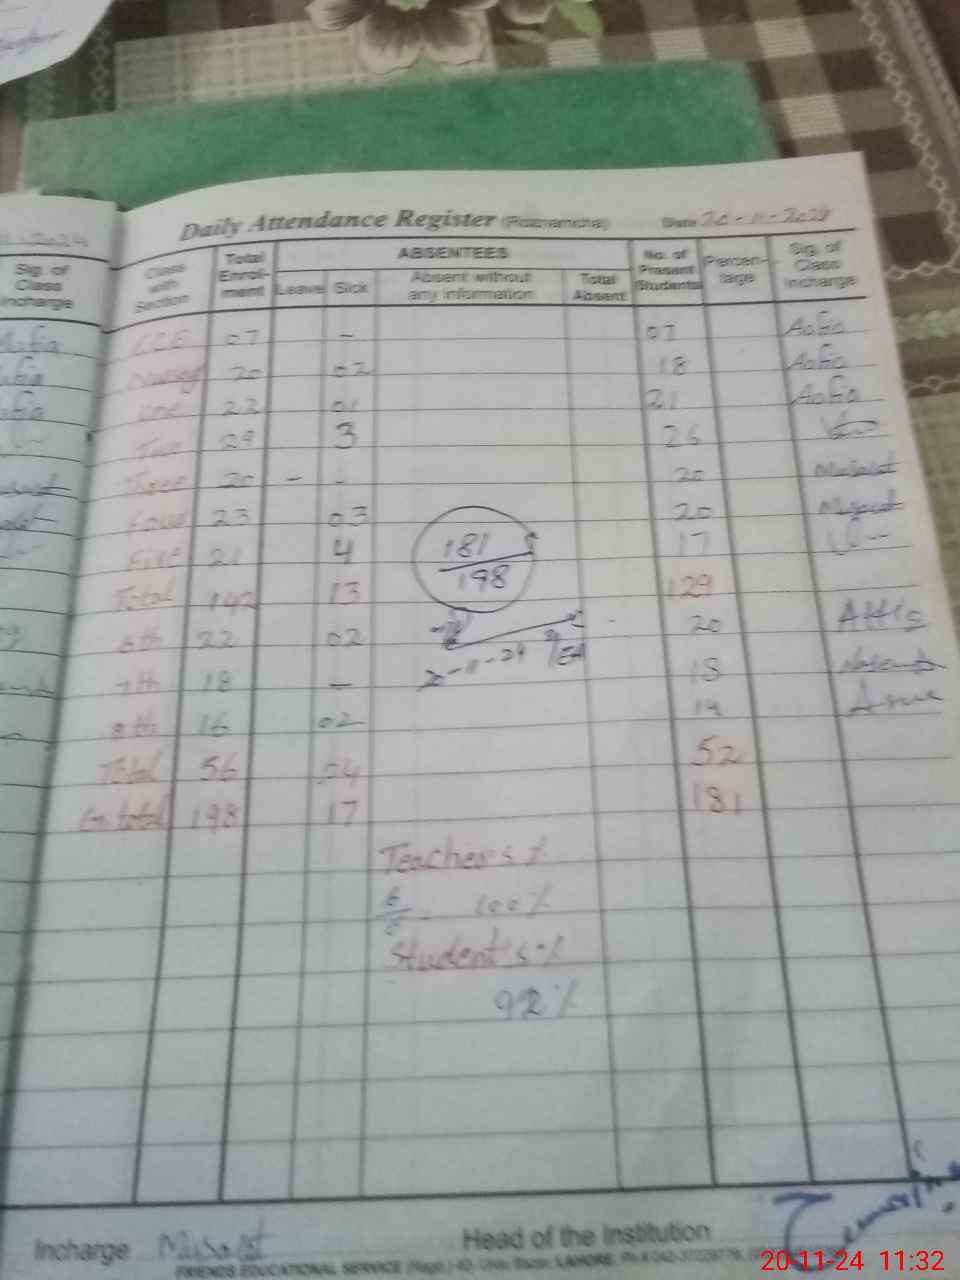 Daily Attendance Register (Roznamcha) Date 20-11-2024
Sig. of Class incharge
Class with Section Total Enroll-ment ABSENTEES Leave Sick Absent without any information Total Absent No. of Present Students Percen-tage Sig. of Class incharge
ECE 07 - 07
Nursery 20 02 18
One 22 01 21
Two 29 3 26
Three 20 - - 20 Musarat
Four 23 03 20 Musarat
Five 21 4 17
181
198
Total 142 13 129
6th 22 02 20
20-11-24
7th 18 - 18
8th 16 02 14
Total 56 04 52
G.total 198 17 181
Teacher's %
6/6 = 100%
Student's %
92%
Incharge Musarat Head of the Institution
FRIENDS EDUCATIONAL SERVICE (Regd.) 40-Urdu Bazar, LAHORE. Ph #:042-37228776,
20-11-24 11:32